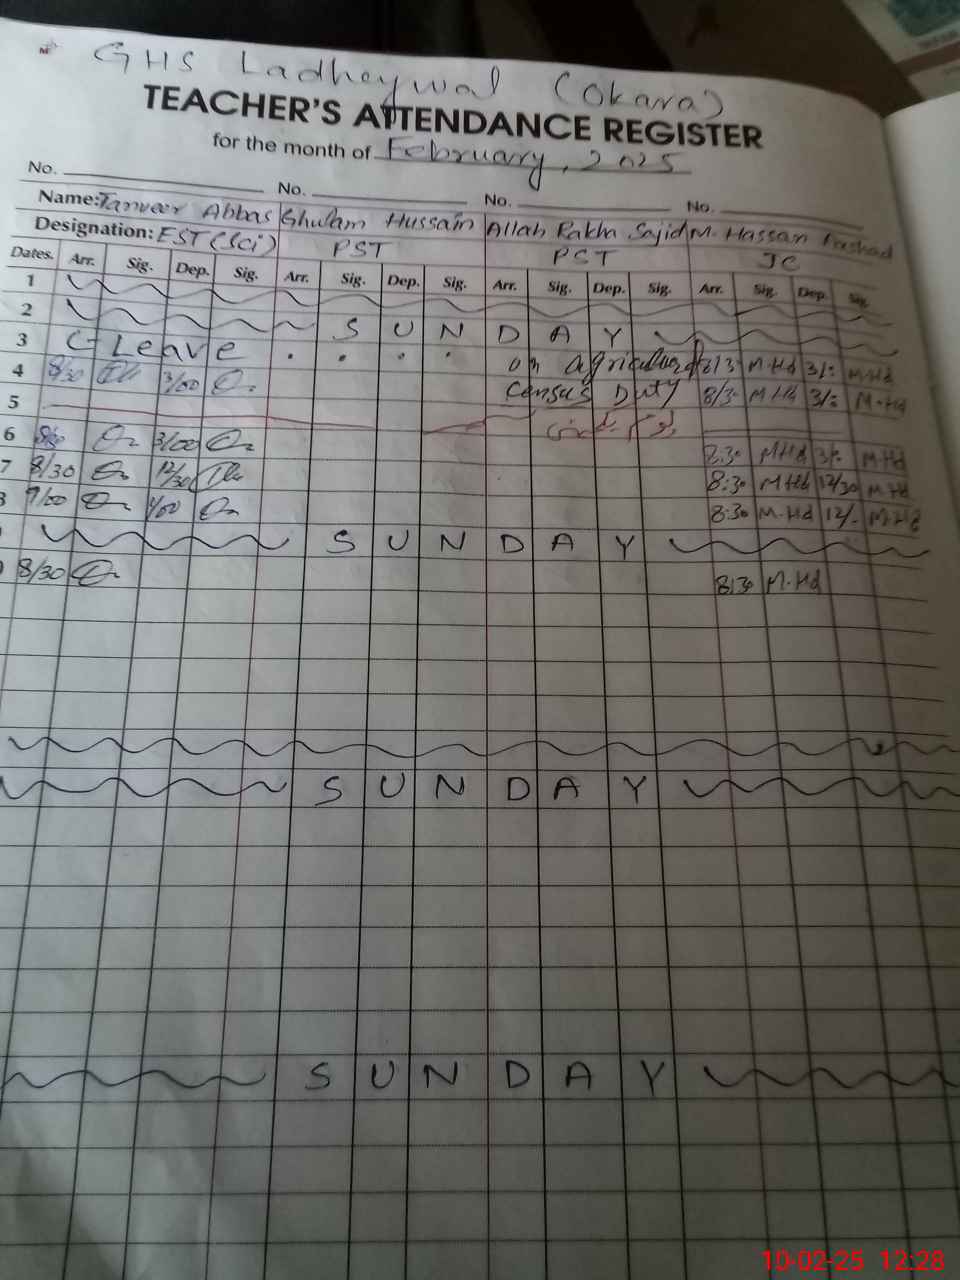 GHS Ladheywal (Okara)
TEACHER'S ATTENDANCE REGISTER
for the month of February, 2025
No. No. No. No.
Name: Tanveer Abbas Ghulam Hussain Allah Rakha Sajid M. Hassan Arshad
Designation: EST (Sci) PST PST JC
Dates. Arr. Sig. Dep. Sig. Arr. Sig. Dep. Sig. Arr. Sig. Dep. Sig. Arr. Sig. Dep. Sig.
1
2 S U N D A Y
3 C-Leave on Agricultural 8/3 M-Hd 3/: M-Hd
4 8/30 3/00 Census Duty 8/3 M-Hd 3/: M-Hd
5
6 3/00 8:30 M-Hd 3/: M-Hd
7 8/30 12/30 8:30 M-Hd 12/30 M-Hd
8 9/00 1/00 8:30 M-Hd 12/- M-Hd
S U N D A Y
8/30 8:30 M-Hd
S U N D A Y
S U N D A Y
10-02-25 12:28